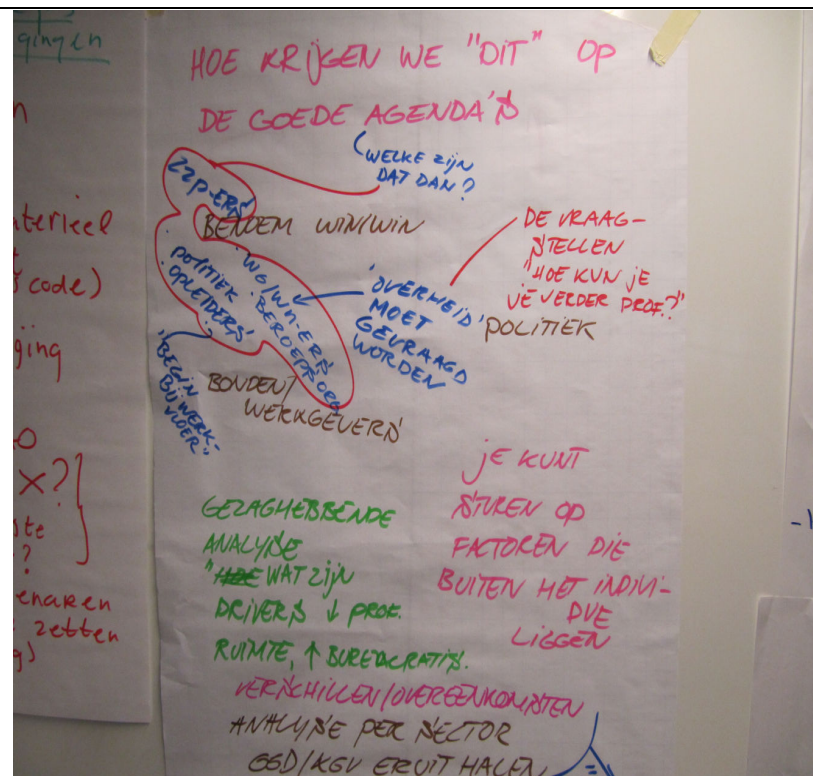 gingen
HOE KRIJGEN WE "DIT" OP
DE GOEDE AGENDA'S
WELKE ZIJN
DAT DAN?
ZZP-ERS
BENOEM WIN/WIN
POLITIEK
OPLEIDERS
WG/WN-ERS
BEROEPSORG
"BEGIN
BIJ WERK-
VLOER"
'OVERHEID'
MOET
GEVRAAGD
WORDEN
DE VRAAG-
STELLEN
"HOE KUN JE
JE VERDER PROF.?"
POLITIEK
BONDEN/
WERKGEVERS
JE KUNT
STUREN OP
FACTOREN DIE
BUITEN HET INDIVI-
DUE
LIGGEN
GEZAGHEBBENDE
ANALYSE
"HOE WAT ZIJN
DRIVERS ↓ PROF.
RUIMTE, ↑ BUREACRATIS.
VERSCHILLEN/OVEREENKOMSTEN
ANALYSE PER SECTOR
GGD/KGV ERUIT HALEN
n
terieel
code)
ging
x?
ste
?
enaren
zetten
g)